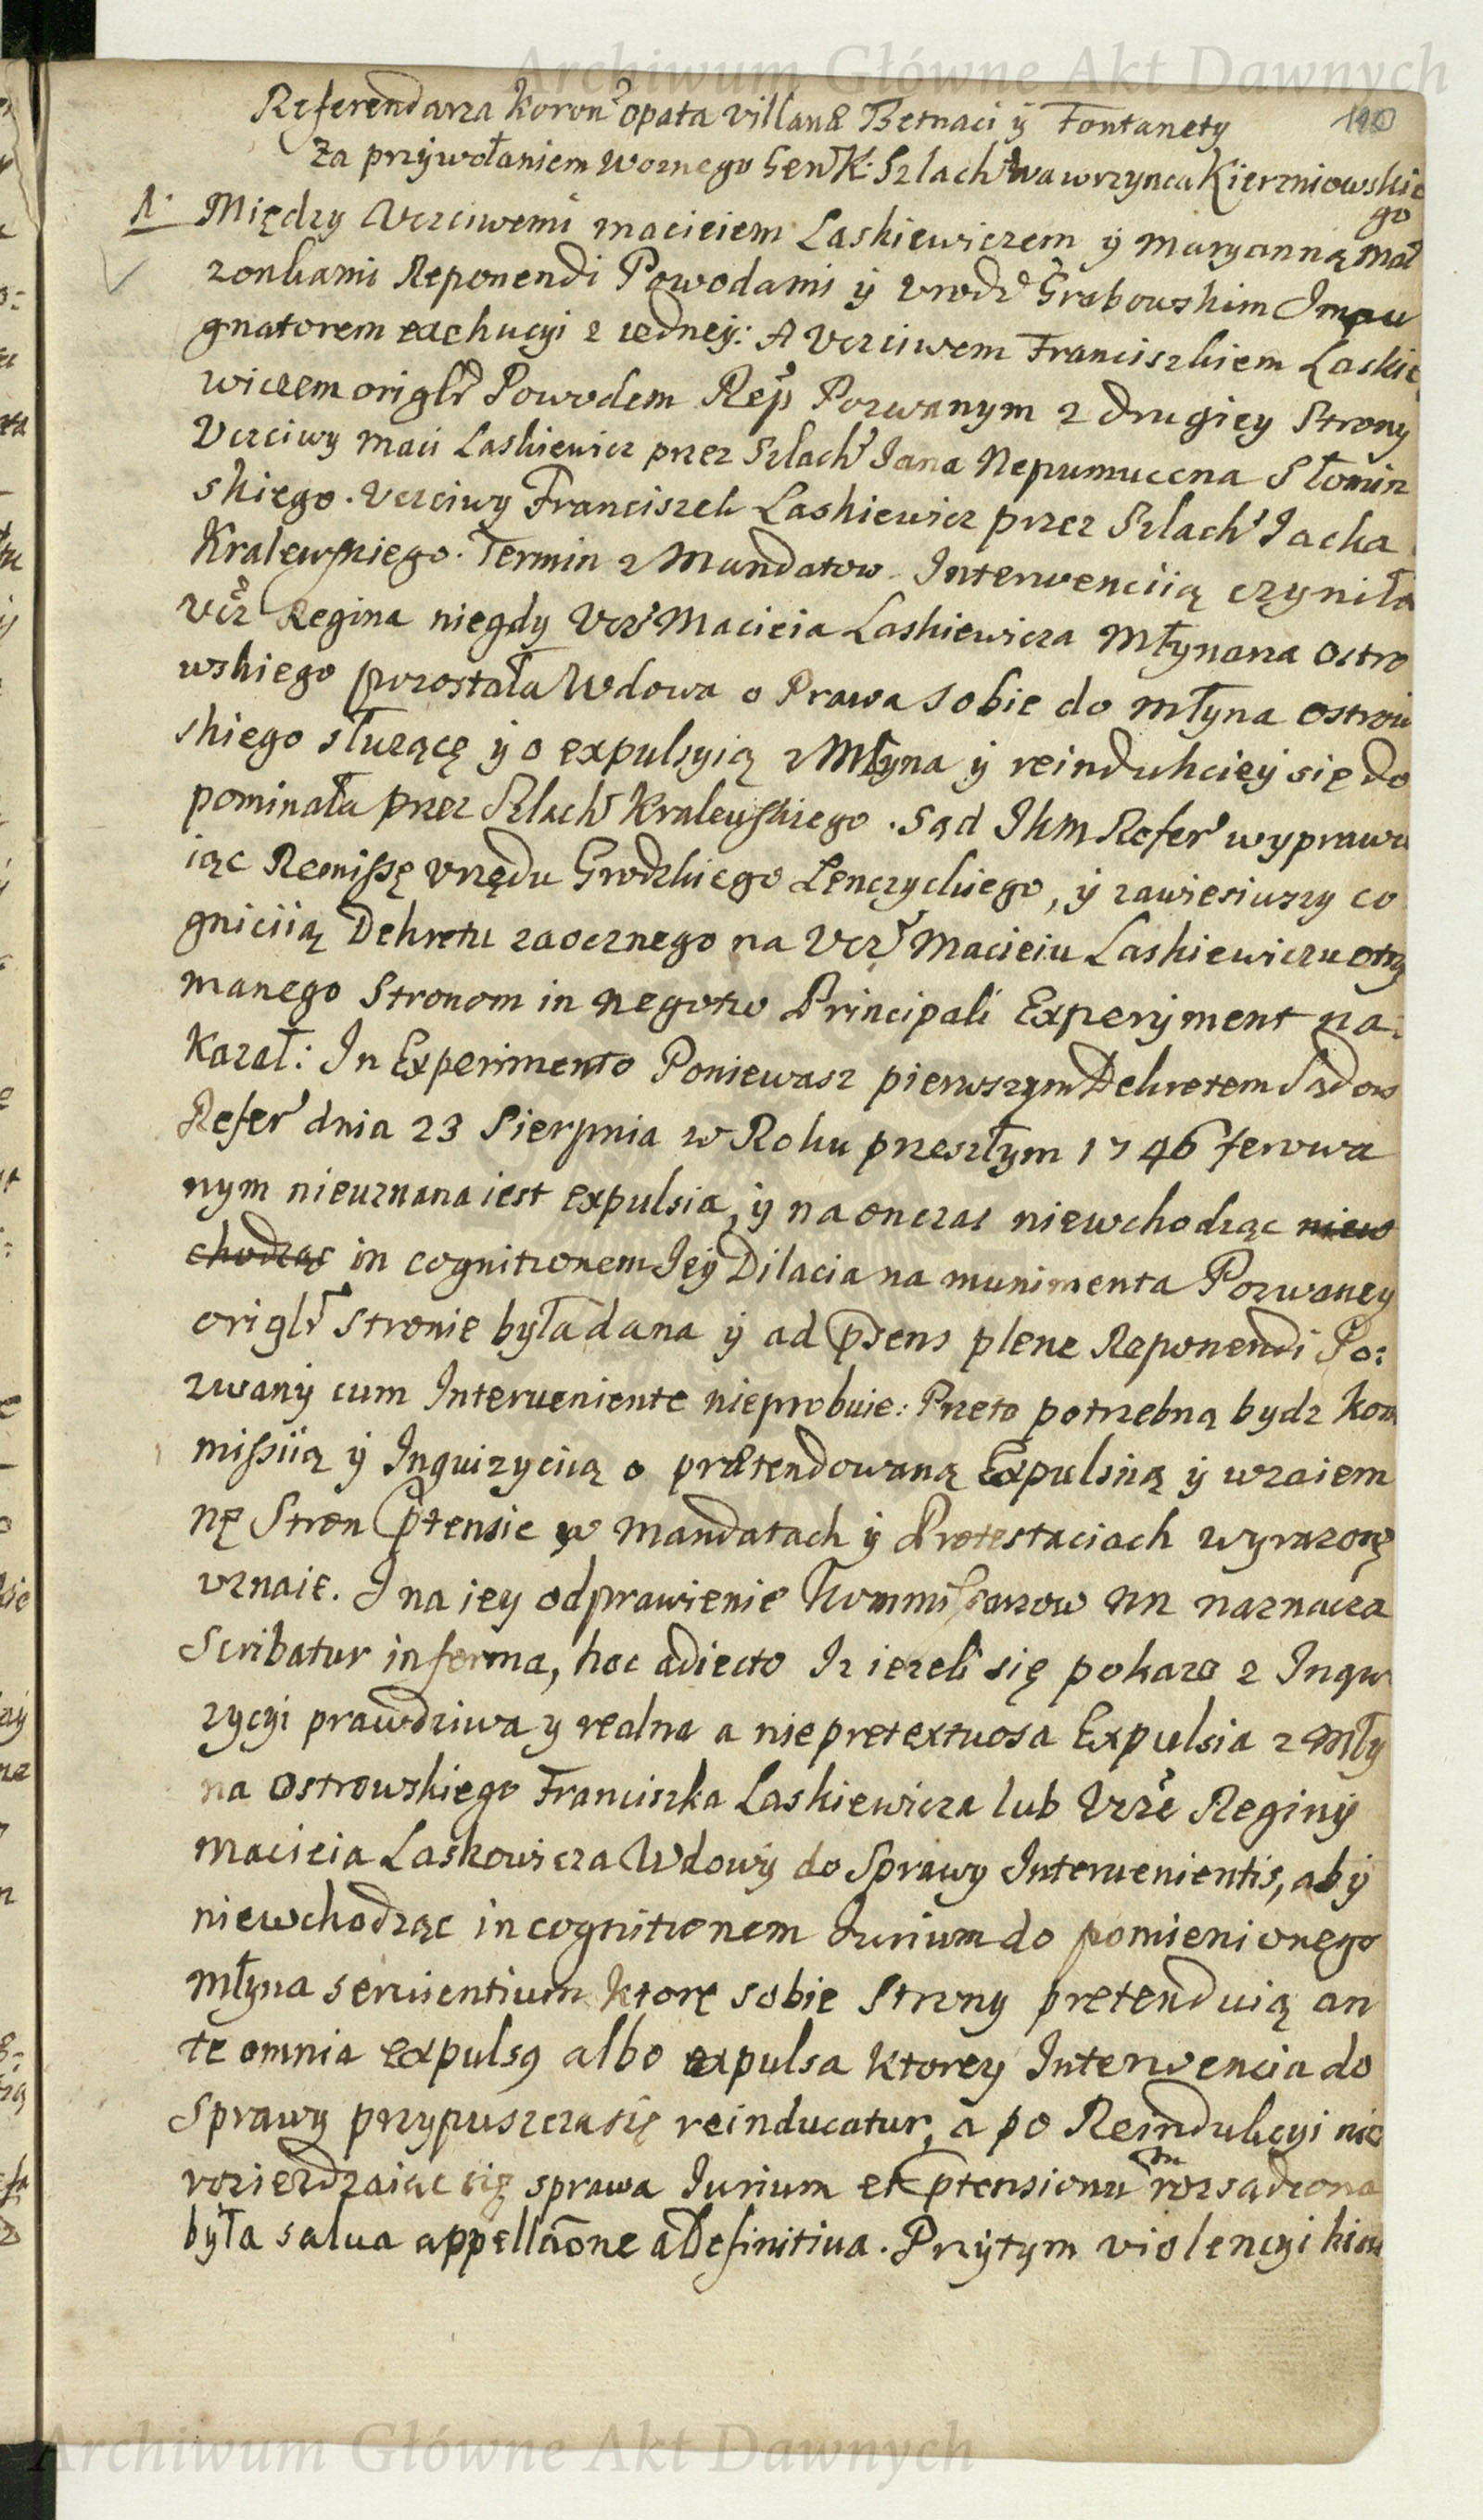 Archiwum Główne Akt Dawnych
190
Referendarza koron° opata Villanæ Betnaci ÿ Fontanety
Za przÿwołaniem woznego Gen K: Szlach Wawrzynca Kierzniowskie
go
1. Między Vczciwemi macieiem Laskiewiczem ÿ maryanną mał
zonkami Reponendi Powodami ÿ vrodz Grabowskim Impu
gnatorem exekucyi z iedneÿ: A Vczciwem Franciszkiem Laskie
wiczem origlr Powodem Rep Pozwanym z drugiey Strony
Vczciwy maci Laskiewicz przez Szlach Jana Nepumucena Słomin
skiego. Vczciwy Franciszek Laskiewicz przez Szlach Jacka
Kralewskiego. Termin z Mandatow. Interwenciią czyniła
vcz Regina niegdy Vcz Macieia Laskiewicza Młynarza Ostro
wskiego pozostała Wdowa o Prawa sobie do młyna ostrow
skiego słuzącę ÿ o expulsyią z Młyna ÿ reindukcieÿ się do
pominała przez Szlach Kralewskiego. Sąd JKM Refer wyprawu
iąc Remissę vrzędu Grodzkiego Lenczyckiego, ÿ zawiesiwszy co
gniciią Dekretu zaocznego na Vcz Macieiu Laskiewiczu otrzy
manego Stronom in negotio Principali Experÿment na:
kazał: In Experimento Poniewasz pierwszym Dekretem Sądow
Refer dnia 23 Sierpnia w Roku przeszłym 1746 ferowa
nym nieuznana iest expulsia, ÿ na onczas niewchodząc niew
chodząc in cognitionem Jeÿ Dilacia na munimenta Pozwaney
origlr stronie była dana ÿ ad psens plene Reponendi Po:
zwanÿ cum Interueniente nieprobuie: Przeto potrzebną bydz kom
missiią ÿ Inquizyciią o prætendowaną Expulsiią ÿ wzaiem
nę Stron ptensie w mandatach ÿ Protestaciach wyrazonę
vznaie. I na iey odprawienie Kommissarzow NN naznacza
Scribatur in forma, hoc adiecto Iz iezeli się pokaze z Inqwi
zycyi prawdziwa y realna a niepretextuosa Expulsia z Mły
na Ostrowskiego Franciszka Laskiewicza lub Vcze Reginÿ
Macieia Laskowicza Wdowÿ do Sprawy Interuenientis, abÿ
niewchodząc in cognitionem Iurium do pomienionego
młyna seruientium ktorę sobie Strony pretenduią an
te omnia expulsg albo expulsa ktorey Interwencia do
Sprawy przypuszcza się reinducatur, a po Reindukcyi nie
rozierdzaiąc się sprawa Iurium et ptensionum rozsądzona
była salua appellaone a Definitiua. Przÿtym violencyi kim
Archiwum Główne Akt Dawnych